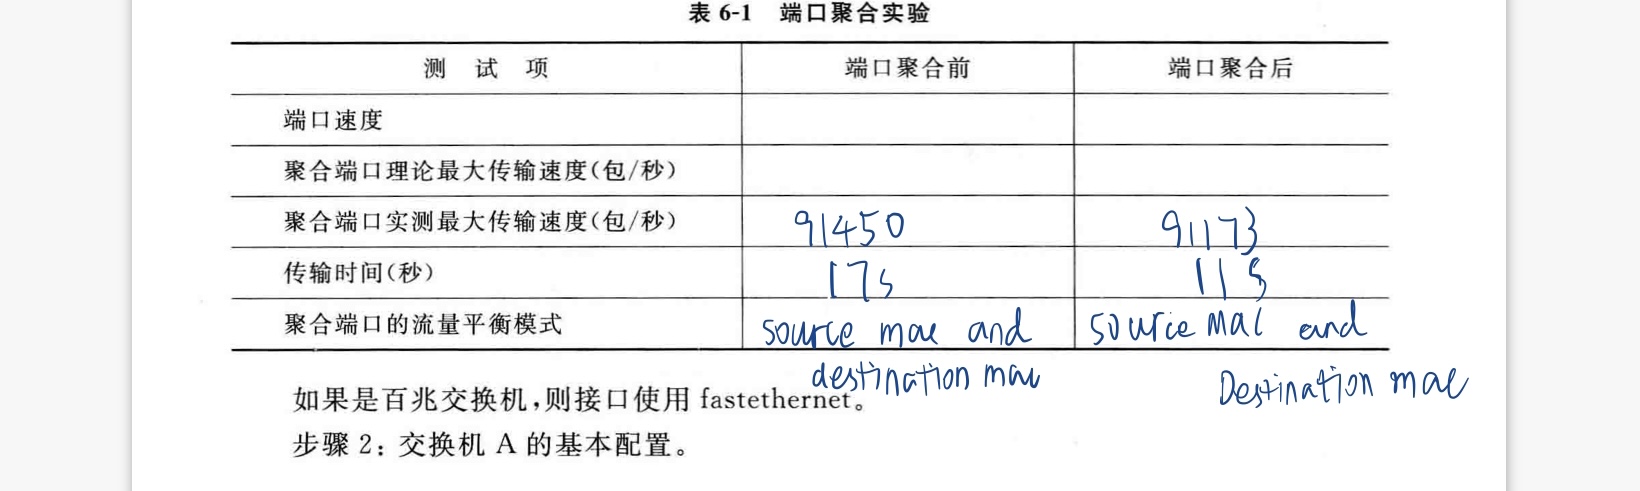 表 6-1 端口聚合实验
测 试 项 端口聚合前 端口聚合后
端口速度
聚合端口理论最大传输速度(包/秒)
聚合端口实测最大传输速度(包/秒) 91450 91173
传输时间(秒) 17s 11s
聚合端口的流量平衡模式 source mac and source MAC and
destination mac Destination mac
如果是百兆交换机,则接口使用 fastethernet。
步骤 2: 交换机 A 的基本配置。